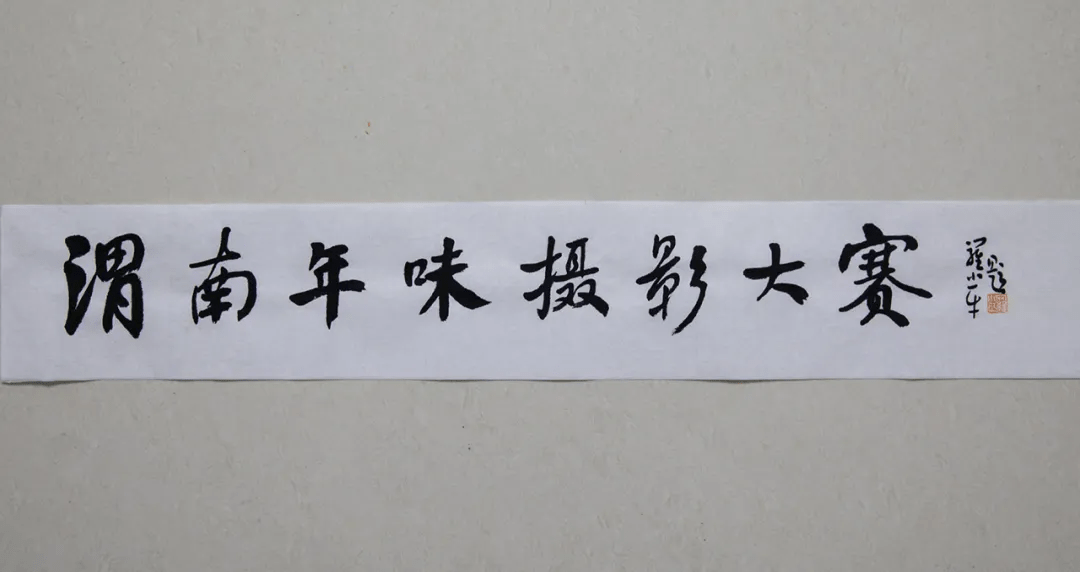 渭南年味摄影大赛
题